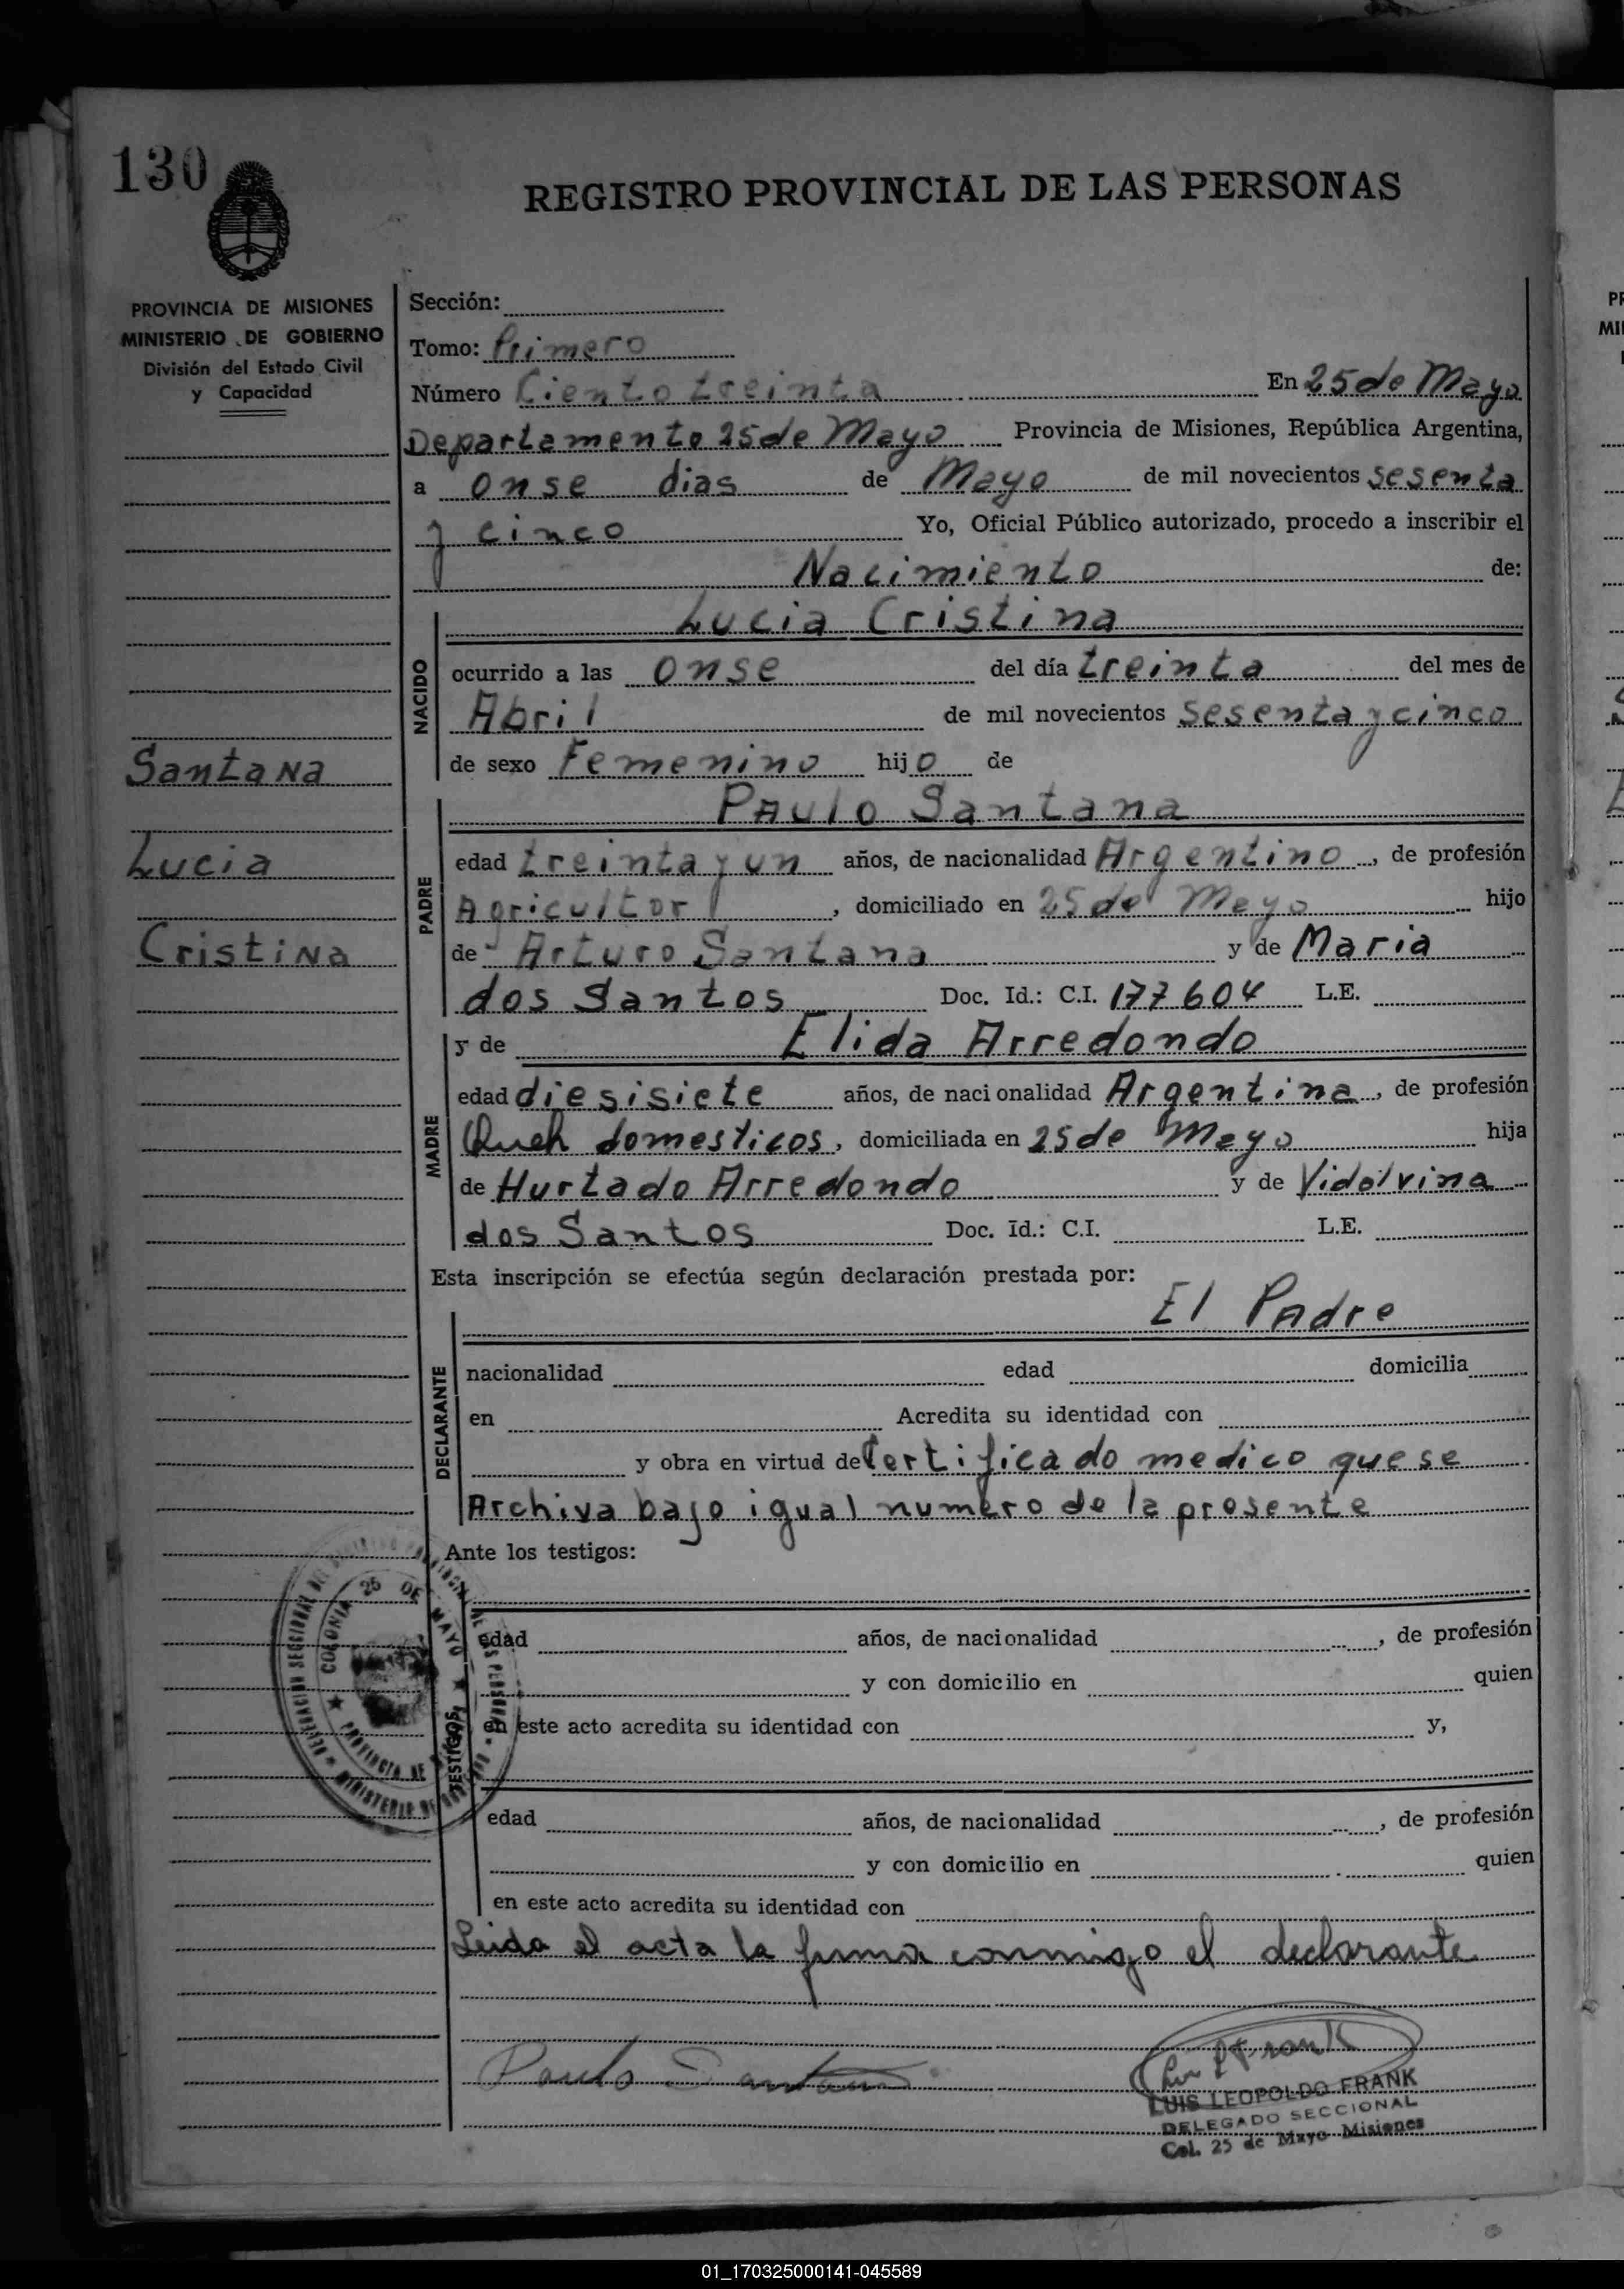 130
REGISTRO PROVINCIAL DE LAS PERSONAS
PROVINCIA DE MISIONES
MINISTERIO DE GOBIERNO
División del Estado Civil
y Capacidad
Sección:
Tomo: Primero
Número Ciento treinta En 25 de Mayo
Departamento 25 de Mayo Provincia de Misiones, República Argentina,
a onse dias de Mayo de mil novecientos sesenta
y cinco Yo, Oficial Público autorizado, procedo a inscribir el
Nacimiento de:
NACIDO
Lucia Cristina
ocurrido a las onse del día treinta del mes de
Abril de mil novecientos sesenta y cinco
de sexo Femenino hijo de
Santana
Lucia
Cristina
PADRE
Paulo Santana
edad treinta y un años, de nacionalidad Argentino, de profesión
Agricultor, domiciliado en 25 de Mayo hijo
de Arturo Santana y de Maria
dos Santos Doc. Id.: C.I. 177604 L.E.
MADRE
y de Elida Arredondo
edad diesisiete años, de nacionalidad Argentina, de profesión
domesticos, domiciliada en 25 de Mayo hija
de Hurtado Arredondo y de Vidalvina
dos Santos Doc. Id.: C.I. L.E.
Esta inscripción se efectúa según declaración prestada por:
DECLARANTE
El Padre
nacionalidad edad domicilia
en Acredita su identidad con
y obra en virtud de Certificado medico que se
Archiva bajo igual numero de la presente
Ante los testigos:
TESTIGOS
edad años, de nacionalidad , de profesión
y con domicilio en quien
en este acto acredita su identidad con y,
edad años, de nacionalidad , de profesión
y con domicilio en quien
en este acto acredita su identidad con
COLONIA 25 DE MAYO
PROVINCIA DE
Leida el acta la firma conmigo el declarante
Paulo Santana
LUIS LEOPOLDO FRANK
DELEGADO SECCIONAL
Col. 25 de Mayo Misiones
01_170325000141-045589